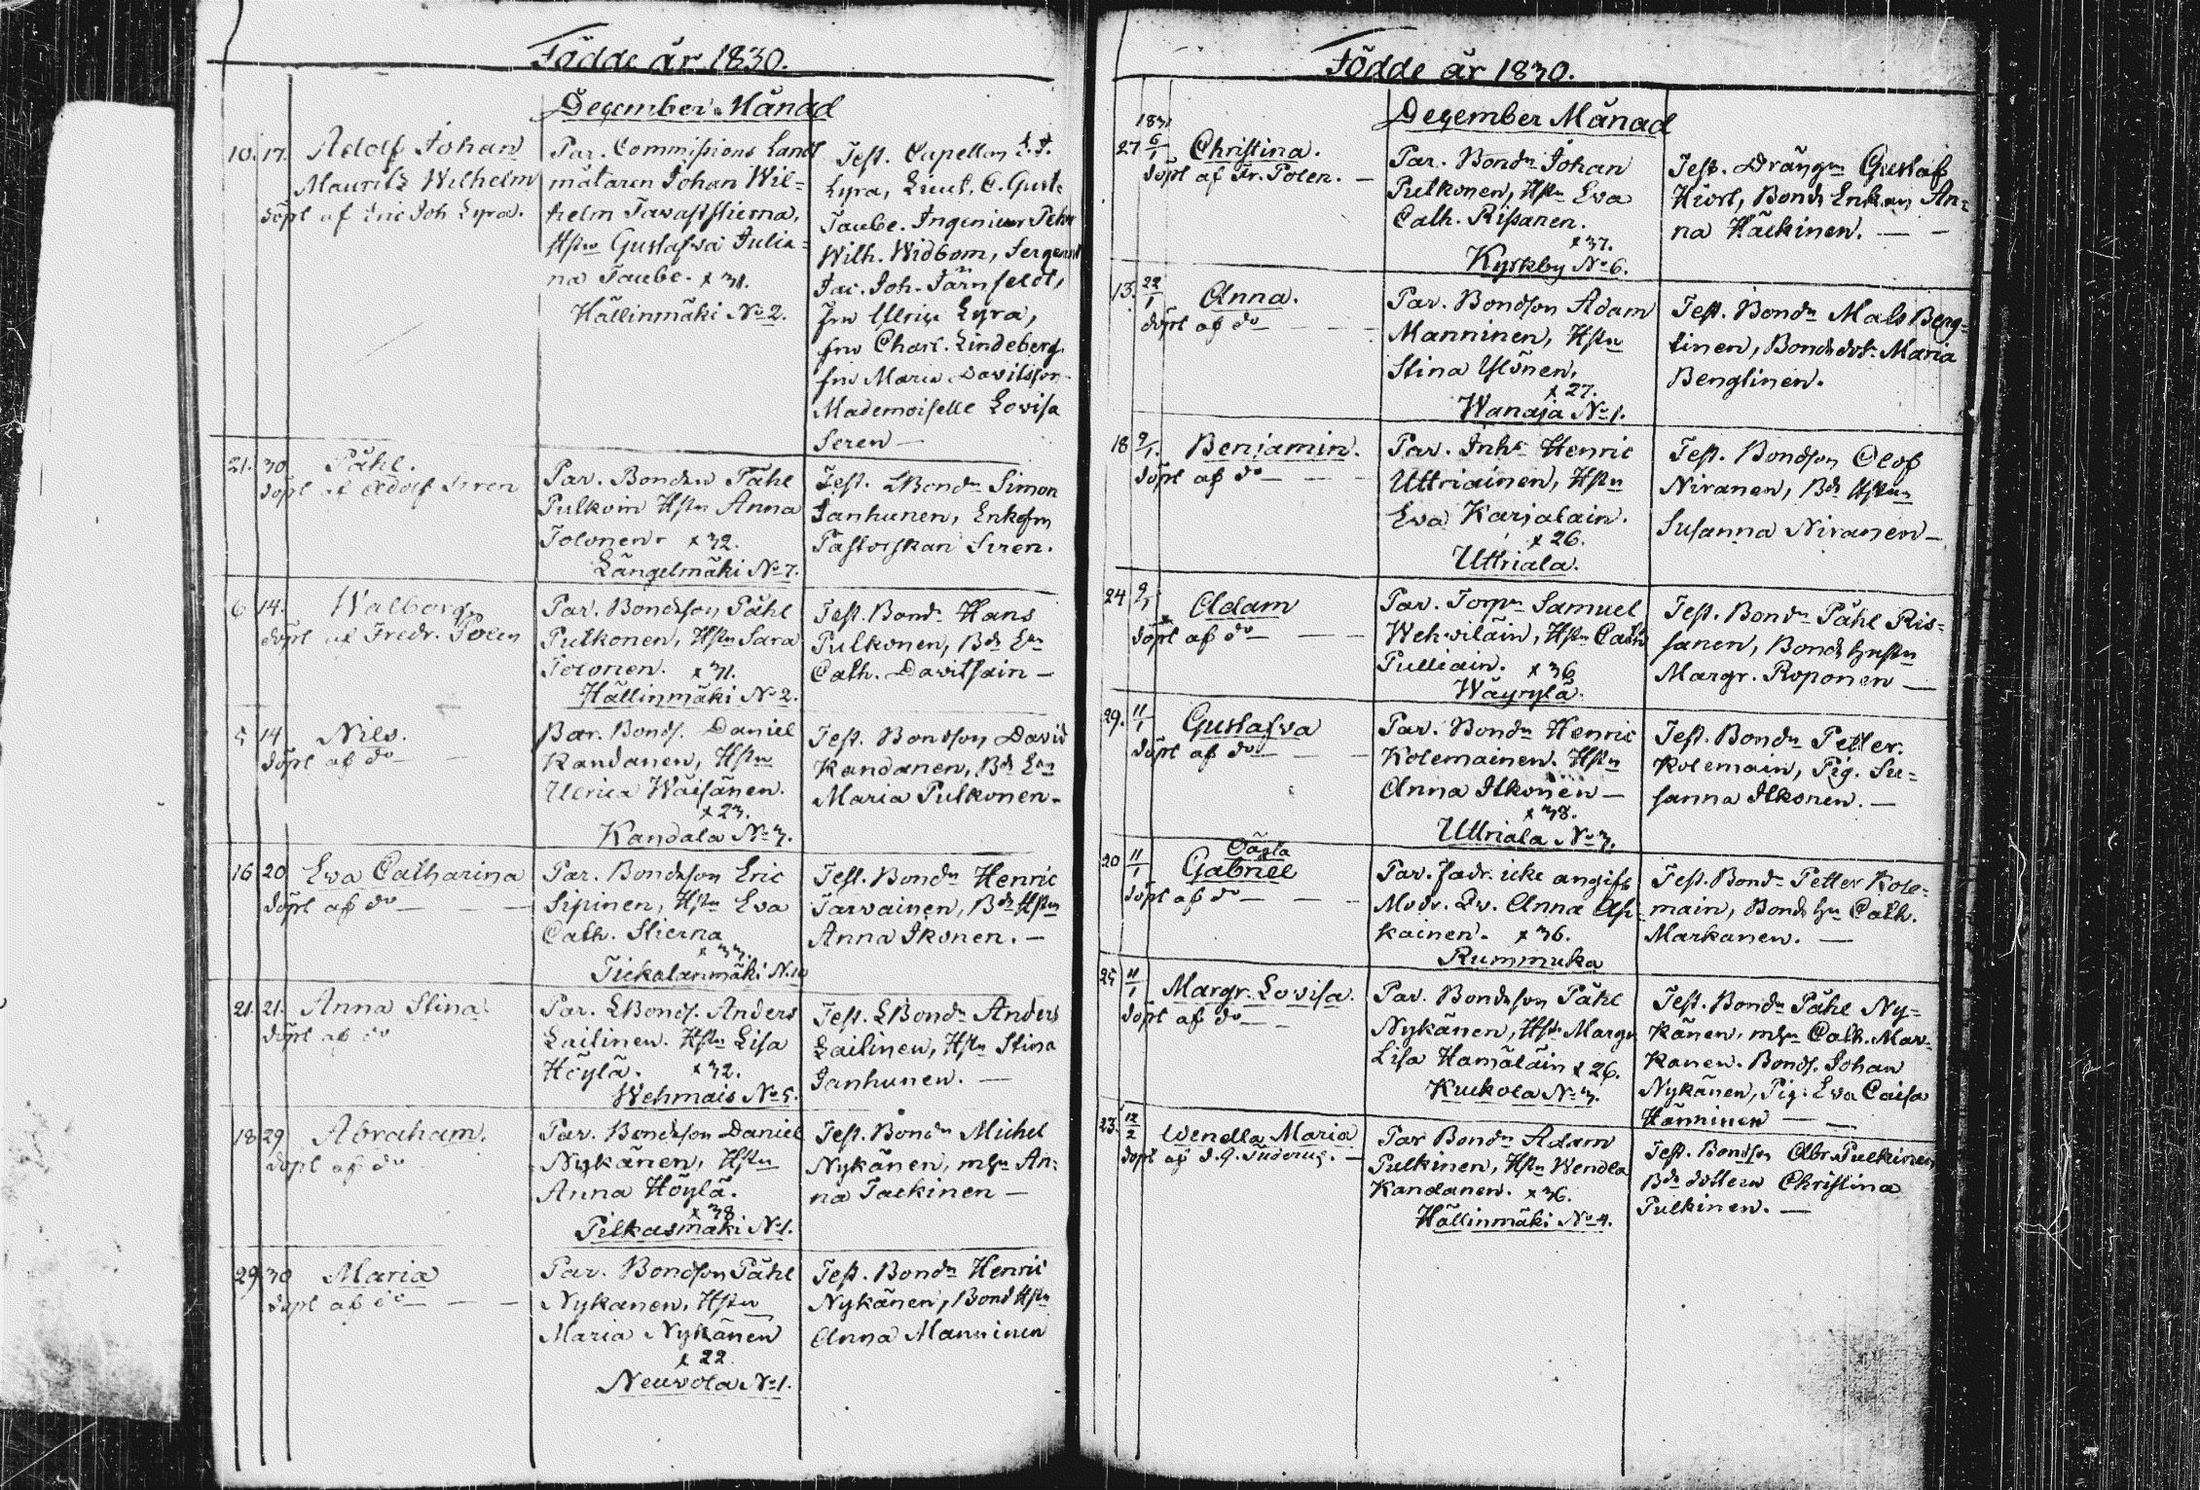 Födde år 1830.
December Månad
10. 17. Adolf Johan
Mauritz Wilhelm
döpt af Eric Joh Lyra.
Par. Commissions Landt
mätaren Johan Wil=
helm Tavaststierna,
Hstu Gustafva Julia=
na Taube. x 31.
Hällinmäki No 2.
Test. Capellan E. J.
Lyra, Lieut. C. Gust.
Taube. Ingenieur Pehr
Wilh. Widbom, Sergeant
Jac. Joh. Järnfeldt,
fru Ulrica Lyra,
fru Charl. Lindeberg
fru Maria Davidsson
Mademoiselle Lovisa
Seren —
21. 30 Påhl.
döpt af Adolf Seren
Par. Bonden Påhl
Pulkoin Hstu Anna
Tolonen x 32.
Längelmäki No 7.
Test. LBondn Simon
Janhunen, Enkefru
Pastorskan Seren.
6 14. Walborg
döpt af Fredr. Polen
Par. Bondeson Påhl
Pulkonen, Hstu Sara
Tolonen. x 31.
Hällinmäki No 2.
Test. Bondn Hans
Pulkonen, Bd En
Cath. Davitsain —
5 14 Nils.
döpt af do —
Par. Bonds. Daniel
Kandanen, Hstu
Ulrica Wäisänen.
x 23.
Kandala No 3.
Test. Bondson David
Kandanen, Bd En
Maria Pulkonen.
16 20 Eva Catharina
döpt af do — — —
Par. Bondeson Eric
Sipinen, Hstu Eva
Cath. Stierna
x 33.
Tiekalanmäki N. 10
Test. Bondn Henric
Tarvainen, Bd Hstu
Anna Ikonen. —
21. 21. Anna Stina.
döpt af do
Par. LBonds. Anders
Laitinen. Hstu Lisa
Höylä. x 32.
Wehmais No 5.
Test. LBondn Anders
Laitinen, Hstu Stina
Janhunen. —
18 29 Abraham.
döpt af do
Par. Bondeson Daniel
Nykänen, Hstu
Anna Höylä.
x 38
Pilkasmäki No 1.
Test. Bondn Michel
Nykänen, An=
na Tackinen —
29 30 Maria
döpt af do — — —
Par. Bondson Påhl
Nykanen, Hstu
Maria Nykänen
x 22.
Neuvola No 1.
Test. Bondn Henric
Nykänen, Bond Hstu
Anna Manninen
Födde år 1830.
December Månad
1831
27 6/1 Christina.
döpt af Fr. Polen. —
Par. Bondn Johan
Pulkonen, Hstu Eva
Cath. Rissanen.
x 37.
Kyrkby No 6.
Test. Drängn Gustaf
Hiort, Bonde Enkan An=
na Häckinen. — —
13. 22/1 Anna.
döpt af do — — —
Par. Bondson Adam
Manninen, Hstu
Stina Ylönen,
x 27.
Wanaja No 1.
Test. Bondn Mats Beng=
tinen, Bondedotr Maria
Bengtinen.
18 9/1. Benjamin.
döpt af do — — —
Par. Inhs Henric
Uttriainen, Hstu
Eva Karjalain.
x 26.
Uttriala.
Test. Bondson Olof
Niranen, Bd Hstun
Susanna Niranen —
24 9/1 Adam
döpt af do — — —
Par. Torpn Samuel
Wehviläin, Hstu Cath
Pulliain. x 36
Wäyrylä.
Test. Bondn Påhl Ris=
sanen, Bonde hustu
Margr. Roponen —
29. 11/1 Gustafva
döpt af do — —
Par. Bondn Henric
Kolemainen. Hstu
Anna Ilkonen —
x 38.
Uttriala No 3.
Test. Bondn Petter
Kolemain, Pig. Su=
sanna Ilkonen. —
20 11/1 Oäkta
Gabriel
döpt af do — — —
Par. fadr. icke angift
Modr. Qv. Anna Asi=
kainen. x 36.
Rummuka
Test. Bondn Petter Kole=
main, Bonde hu Cath.
Markanen. —
25 11/1 Margr. Lovisa.
döpt af do — —
Par. Bondeson Påhl
Nykänen, Hstu Margr
Lisa Hamäläin x 26.
Kukkola No 3.
Test. Bondn Påhl Ny=
känen, Cath. Mar=
kanen. Bonds. Johan
Nykänen, Pig. Eva Caisa
Hänninen — —
23. 12/2 Wendla Maria
döpt af
Par Bondn Adam
Pulkinen, Hstu Wendla
Kandanen. x 36.
Hällinmäki No 4.
Test. Bondson Abr. Pulkinen
Bde dottern Christina
Pulkinen. —